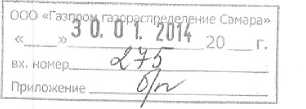 ООО «Газпром газораспределение Самара»
« » 30.01.2014 20 г.
вх. номер 275
Приложение б/п